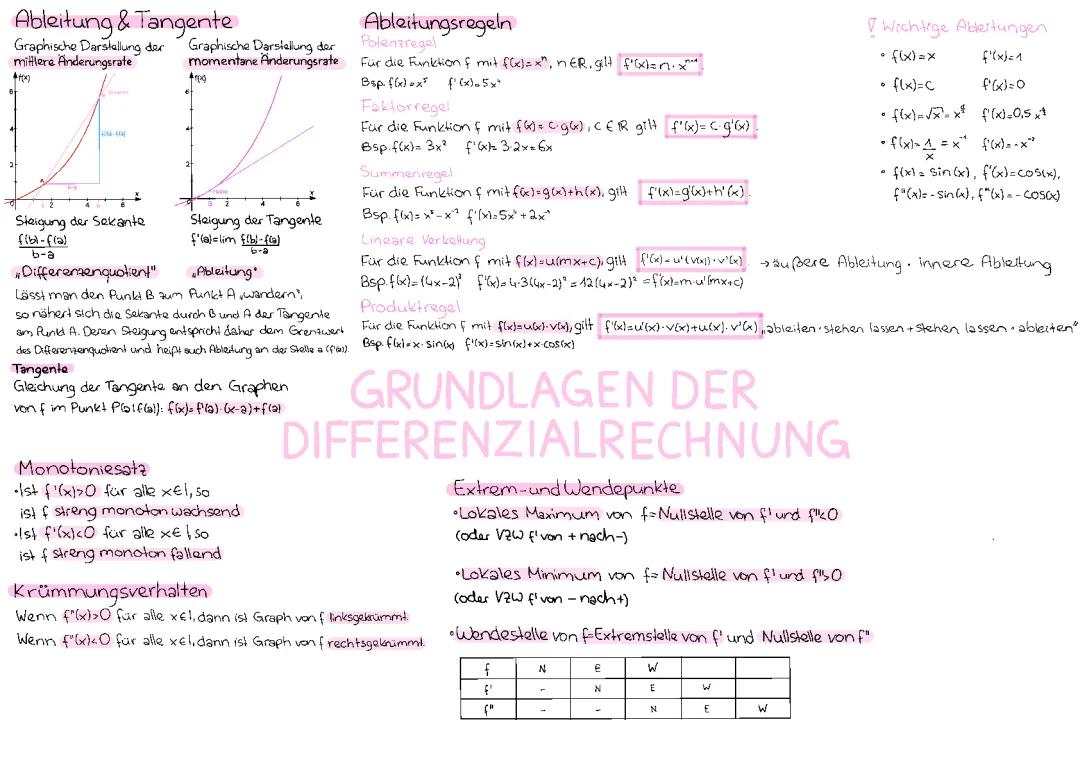 Ableitung & Tangente
Graphische Darstellung der
mittlere Änderungsrate
Graphische Darstellung der
momentane Änderungsrate
Steigung der Sekante
f(b)-f(a)
b-a
"Differenzenquotient"
Steigung der Tangente
f'(a)=lim f(b)-f(a)
b-a
"Ableitung"
Lässt man den Punkt B zum Punkt A "wandern",
so nähert sich die Sekante durch B und A der Tangente
am Punkt A. Deren Steigung entspricht daher dem Grenzwert
des Differenzenquotient und heißt auch Ableitung an der Stelle a (f'(a)).
Tangente
Gleichung der Tangente an den Graphen
von f im Punkt P(a|f(a)): f(x)=f'(a)·(x-a)+f(a)
Ableitungsregeln
Potenzregel
Für die Funktion f mit f(x)=xⁿ, n∈ℝ, gilt f'(x)=n·xⁿ⁻¹.
Bsp. f(x)=x⁵ f'(x)=5x⁴
Faktorregel
Für die Funktion f mit f(x)=c·g(x), c∈ℝ gilt f'(x)=c·g'(x).
Bsp. f(x)=3x² f'(x)=3·2x=6x
Summenregel
Für die Funktion f mit f(x)=g(x)+h(x), gilt f'(x)=g'(x)+h'(x).
Bsp. f(x)=x⁵-x⁻² f'(x)=5x⁴+2x
Lineare Verkettung
Für die Funktion f mit f(x)=u(mx+c), gilt f'(x)=u'(v(x))·v'(x). → äußere Ableitung · innere Ableitung
Bsp. f(x)=(4x-2)³ f'(x)=4·3(4x-2)²=12(4x-2)² =f'(x)=m·u'(mx+c)
Produktregel
Für die Funktion f mit f(x)=u(x)·v(x), gilt f'(x)=u'(x)·v(x)+u(x)·v'(x) "ableiten·stehen lassen+stehen lassen·ableiten"
Bsp. f(x)=x·sin(x) f'(x)=sin(x)+x·cos(x)
! Wichtige Ableitungen
• f(x)=x f'(x)=1
• f(x)=c f'(x)=0
• f(x)=√x=x f'(x)=0,5x
• f(x)=1/x=x⁻¹ f'(x)=-x⁻²
• f(x)=sin(x), f'(x)=cos(x),
f"(x)=-sin(x), f"(x)=-cos(x)
GRUNDLAGEN DER
DIFFERENZIALRECHNUNG
Monotoniesatz
•Ist f'(x)>0 für alle x∈I, so
ist f streng monoton wachsend
•Ist f'(x)<0 für alle x∈I, so
ist f streng monoton fallend
Krümmungsverhalten
Wenn f"(x)>0 für alle x∈I, dann ist Graph von f linksgekrümmt.
Wenn f"(x)<0 für alle x∈I, dann ist Graph von f rechtsgekrümmt.
Extrem-und Wendepunkte
•Lokales Maximum von f=Nullstelle von f' und f"<0
(oder VZW f' von + nach -)
•Lokales Minimum von f= Nullstelle von f' und f">0
(oder VZW f' von - nach +)
•Wendestelle von f=Extremstelle von f' und Nullstelle von f"
f N E W
f' - N E W
f" - - N E W